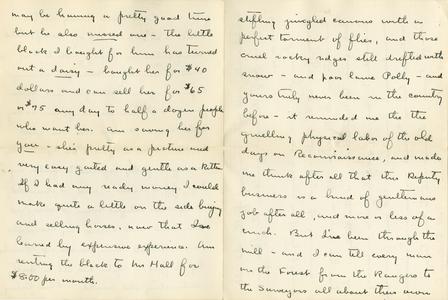 may be having a pretty good time
but he also missed one - the little
black I bought for him has turned
out a daisy - bought her for $40
dollars and can sell her for $65
or $75 any day to half a dozen people
who want her. Am saving her for
you - she's pretty as a picture and
very easy gaited and gentle as a kitten.
If I had any ready money I would
make quite a little on the side buying
and selling horses, now that I've
learned by expensive experience. Am
renting the black to Mr Hall for
$8.00 per month.
stifling jungled canons with a
perfect torment of flies, and those
cruel rocky ridges still drifted with
snow - and poor lame Polly - and
yours truly never been in the country
before - it reminded me the the
gruelling physical labor of the old
days on Reconnaissance, and made
me think after all that this Deputy
business is a kind of gentlemans
job after all, and more or less of a
cinch. But I've been through the
mill - and I can tell every man
on the Forest from the Rangers to
the Surveyors all about their own